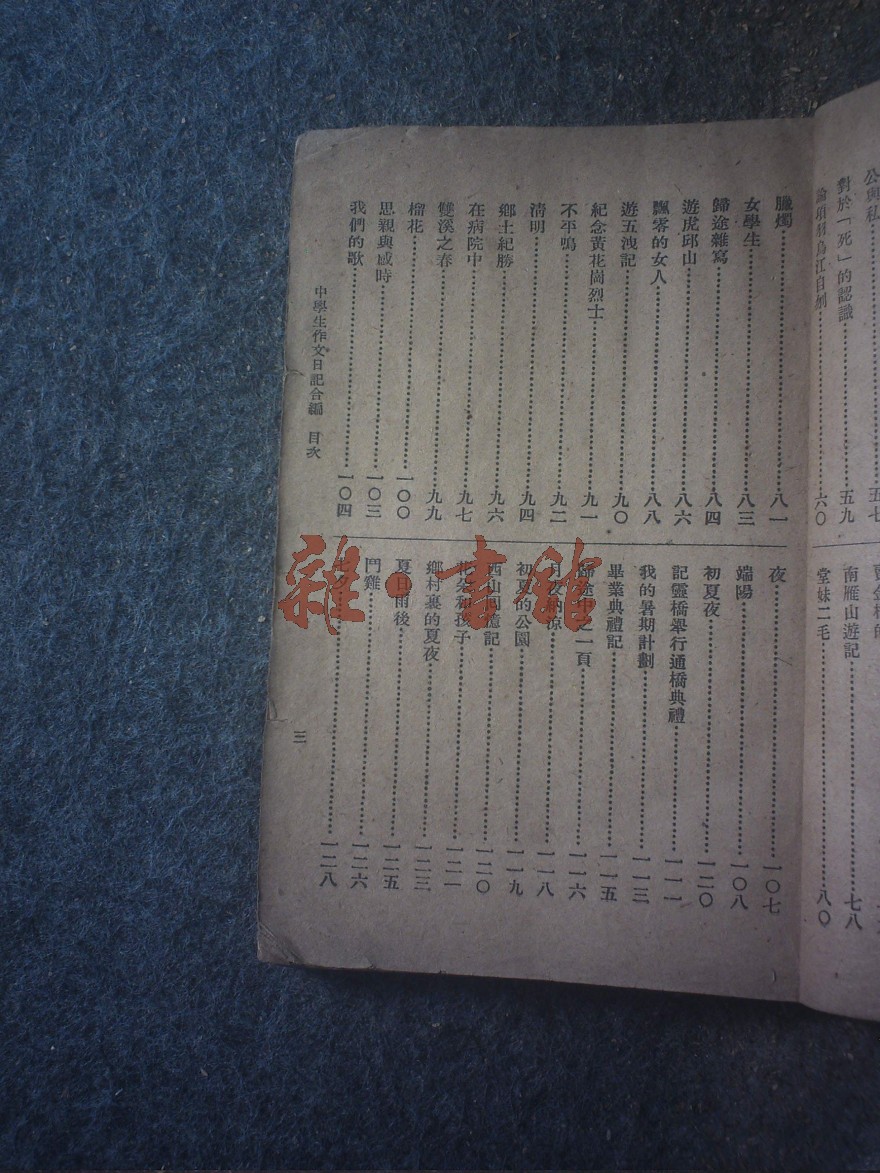 公與私……五七
對於「死」的認識……五九
論項羽烏江自刎……六〇
南雁山遊記……七八
堂妹二毛……八〇
臘燭……八一
女學生……八三
歸途雜寫……八四
遊虎邱山……八六
飄零的女人……八八
遊五洩記……九〇
紀念黃花崗烈士……九一
不平鳴……九二
清明……九四
鄉土紀勝……九六
在病院中……九七
雙溪之春……九九
榴花……一〇〇
思親與感時……一〇三
我們的歌……一〇四
夜……一〇七
端陽……一〇八
初夏夜……一二〇
記靈橋舉行通橋典禮……一一一
我的暑期計劃……一一三
畢業典禮記……一一五
歸途中之一頁……一一六
月夜納涼……一一八
初夏的公園……一一九
西山回憶記……一二〇
花朵和孩子……一二一
鄉村裏的夏夜……一二三
夏日雨後……一二五
鬥雞……一二六
七夕……一二八
中學生作文日記合編 目次
三
雜·書館